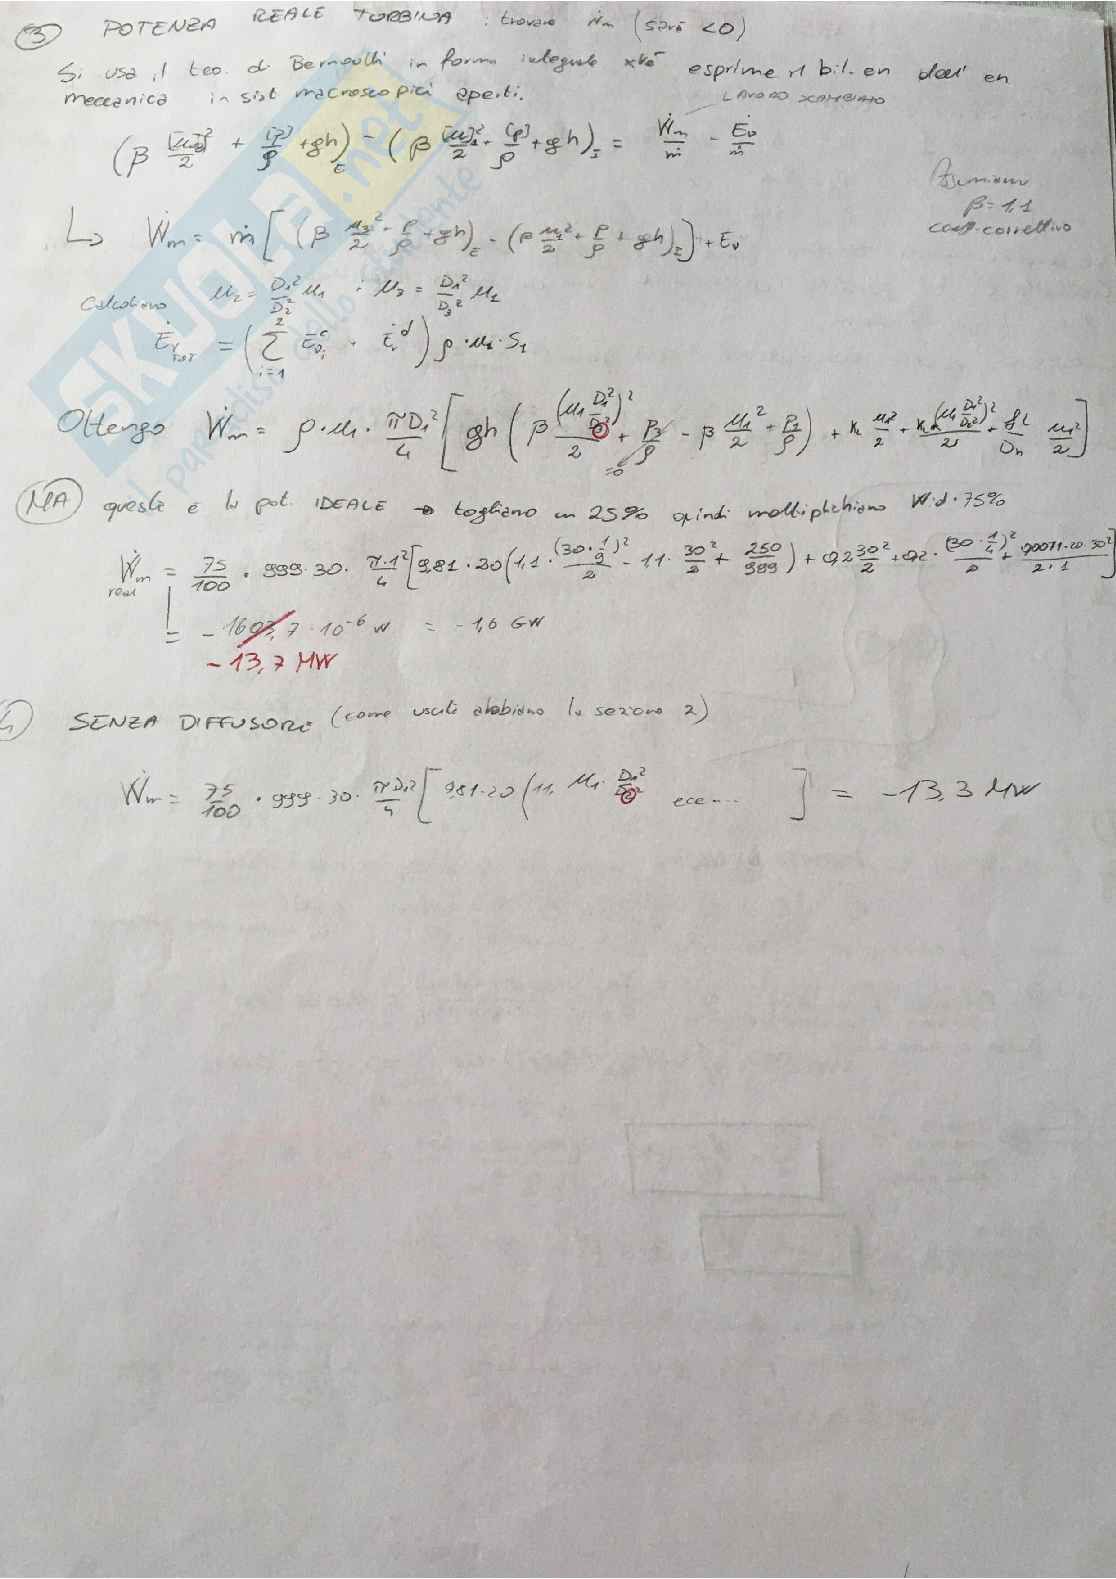 3 POTENZA REALE TURBINA : trovare Ẇm (sarà <0)
Si usa il teo. di Bernoulli in forma integrale xké esprime il bil. en dell' en
meccanica in sist macroscopici aperti.
LAVORO SCAMBIATO
(β [u₂]²/2 + [p]/ρ + gh)_E - (β [u]²/2 + [p]/ρ + gh)_I = Ẇm/ṁ - Ėv/ṁ
Assumiamo
β = 1,1
coeff. correttivo
↳ Ẇm = ṁ [ (β u₃²/2 + P/ρ + gh)_E - (β u₁²/2 + P/ρ + gh)_I ] + Ėv
Calcoliamo u₂ = D₁²/D₂² u₁ ; u₃ = D₁²/D₃² u₁
Ėv TOT = ( Σ i=1 2 Ėv_i^c + Ėv^d ) ρ · u₁ · S₁
Ottengo Ẇm = ρ · u₁ · πD₁²/4 [ gh ( β (u₁ D₁²/D₃²)²/2 + P₂/ρ - β u₁²/2 + P₁/ρ ) + k u₁²/2 + k₂ (u₁ D₁²/D₂²)²/2 + fL/Dh u₁²/2 ]
=0
MA questa è la pot. IDEALE → togliamo un 25% quindi moltiplichiamo W·d·75%
Ẇm real = 75/100 · 999·30 · π·1²/4 [ 9,81 · 20 ( 1,1 · (30·1/9)²/2 - 1,1 · 30²/2 + 250/989 ) + 0,2 30²/2 + 0,2 · (30·1/4)²/2 + 0,0071·20·30²/2·1 ]
= - 1603,7 · 10⁻⁶ W = -1,6 GW
- 13,7 MW
4 SENZA DIFFUSORE (come uscita abbiamo la sezione 2)
Ẇm = 75/100 · 999·30 · πD₁²/4 [ 9,81·20 ( 1,1 · u₁ · D₁²/D₂² ecc.... ] = -13,3 MW
SKUOLA.net
il paradiso dello studente